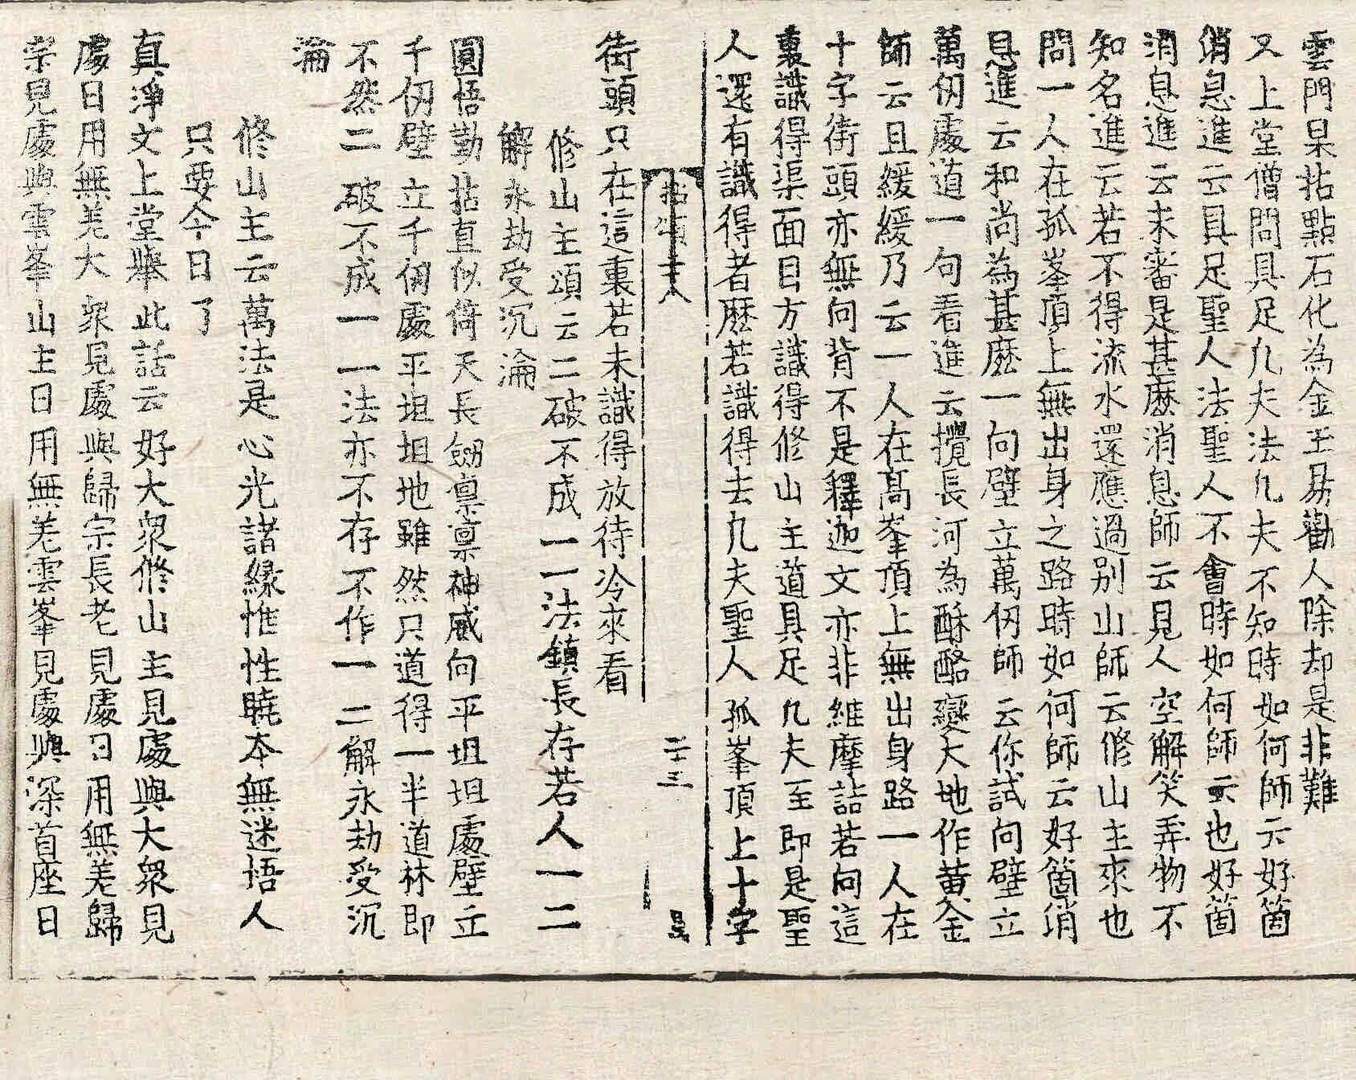 雲門杲拈點石化為金玉易勸人除却是非難
又上堂僧問具足凢夫法凢夫不知時如何師云好箇
消息進云具足聖人法聖人不會時如何師云也好箇
消息進云未審是甚麽消息師云見人空解笑弄物不
知名進云若不得流水還應過别山師云修山主來也
問一人在孤峯頂上無出身之路時如何師云好箇消
息進云和尚為甚麽一向壁立萬仞師云你試向壁立
萬仞處道一句看進云攪長河為酥酪變大地作黄金
師云且緩緩乃云一人在髙峯頂上無出身路一人在
十字街頭亦無向背不是釋迦文亦非維摩詰若向這
裏識得渠面目方識得修山主道具足凢夫至即是聖
人還有識得者麽若識得去凢夫聖人孤峯頂上十字
拈頌十八
二十三
街頭只在這裏若未識得放待冷來看
修山主頌云二破不成一一法鎮長存若人一二
解永劫受沉淪
圓悟勤拈直似倚天長劒凛凛神威向平坦坦處壁立
千仞壁立千仞處平坦坦地雖然只道得一半道林即
不然二破不成一一法亦不存不作一二解永劫受沉
淪
修山主云萬法是心光諸緣惟性曉本無迷悟人
只要今日了
真淨文上堂舉此話云好大衆修山主見處與大衆見
處日用無差大衆見處與歸宗長老見處日用無差歸
宗見處與雲峯山主日用無差雲峯見處與深首座日